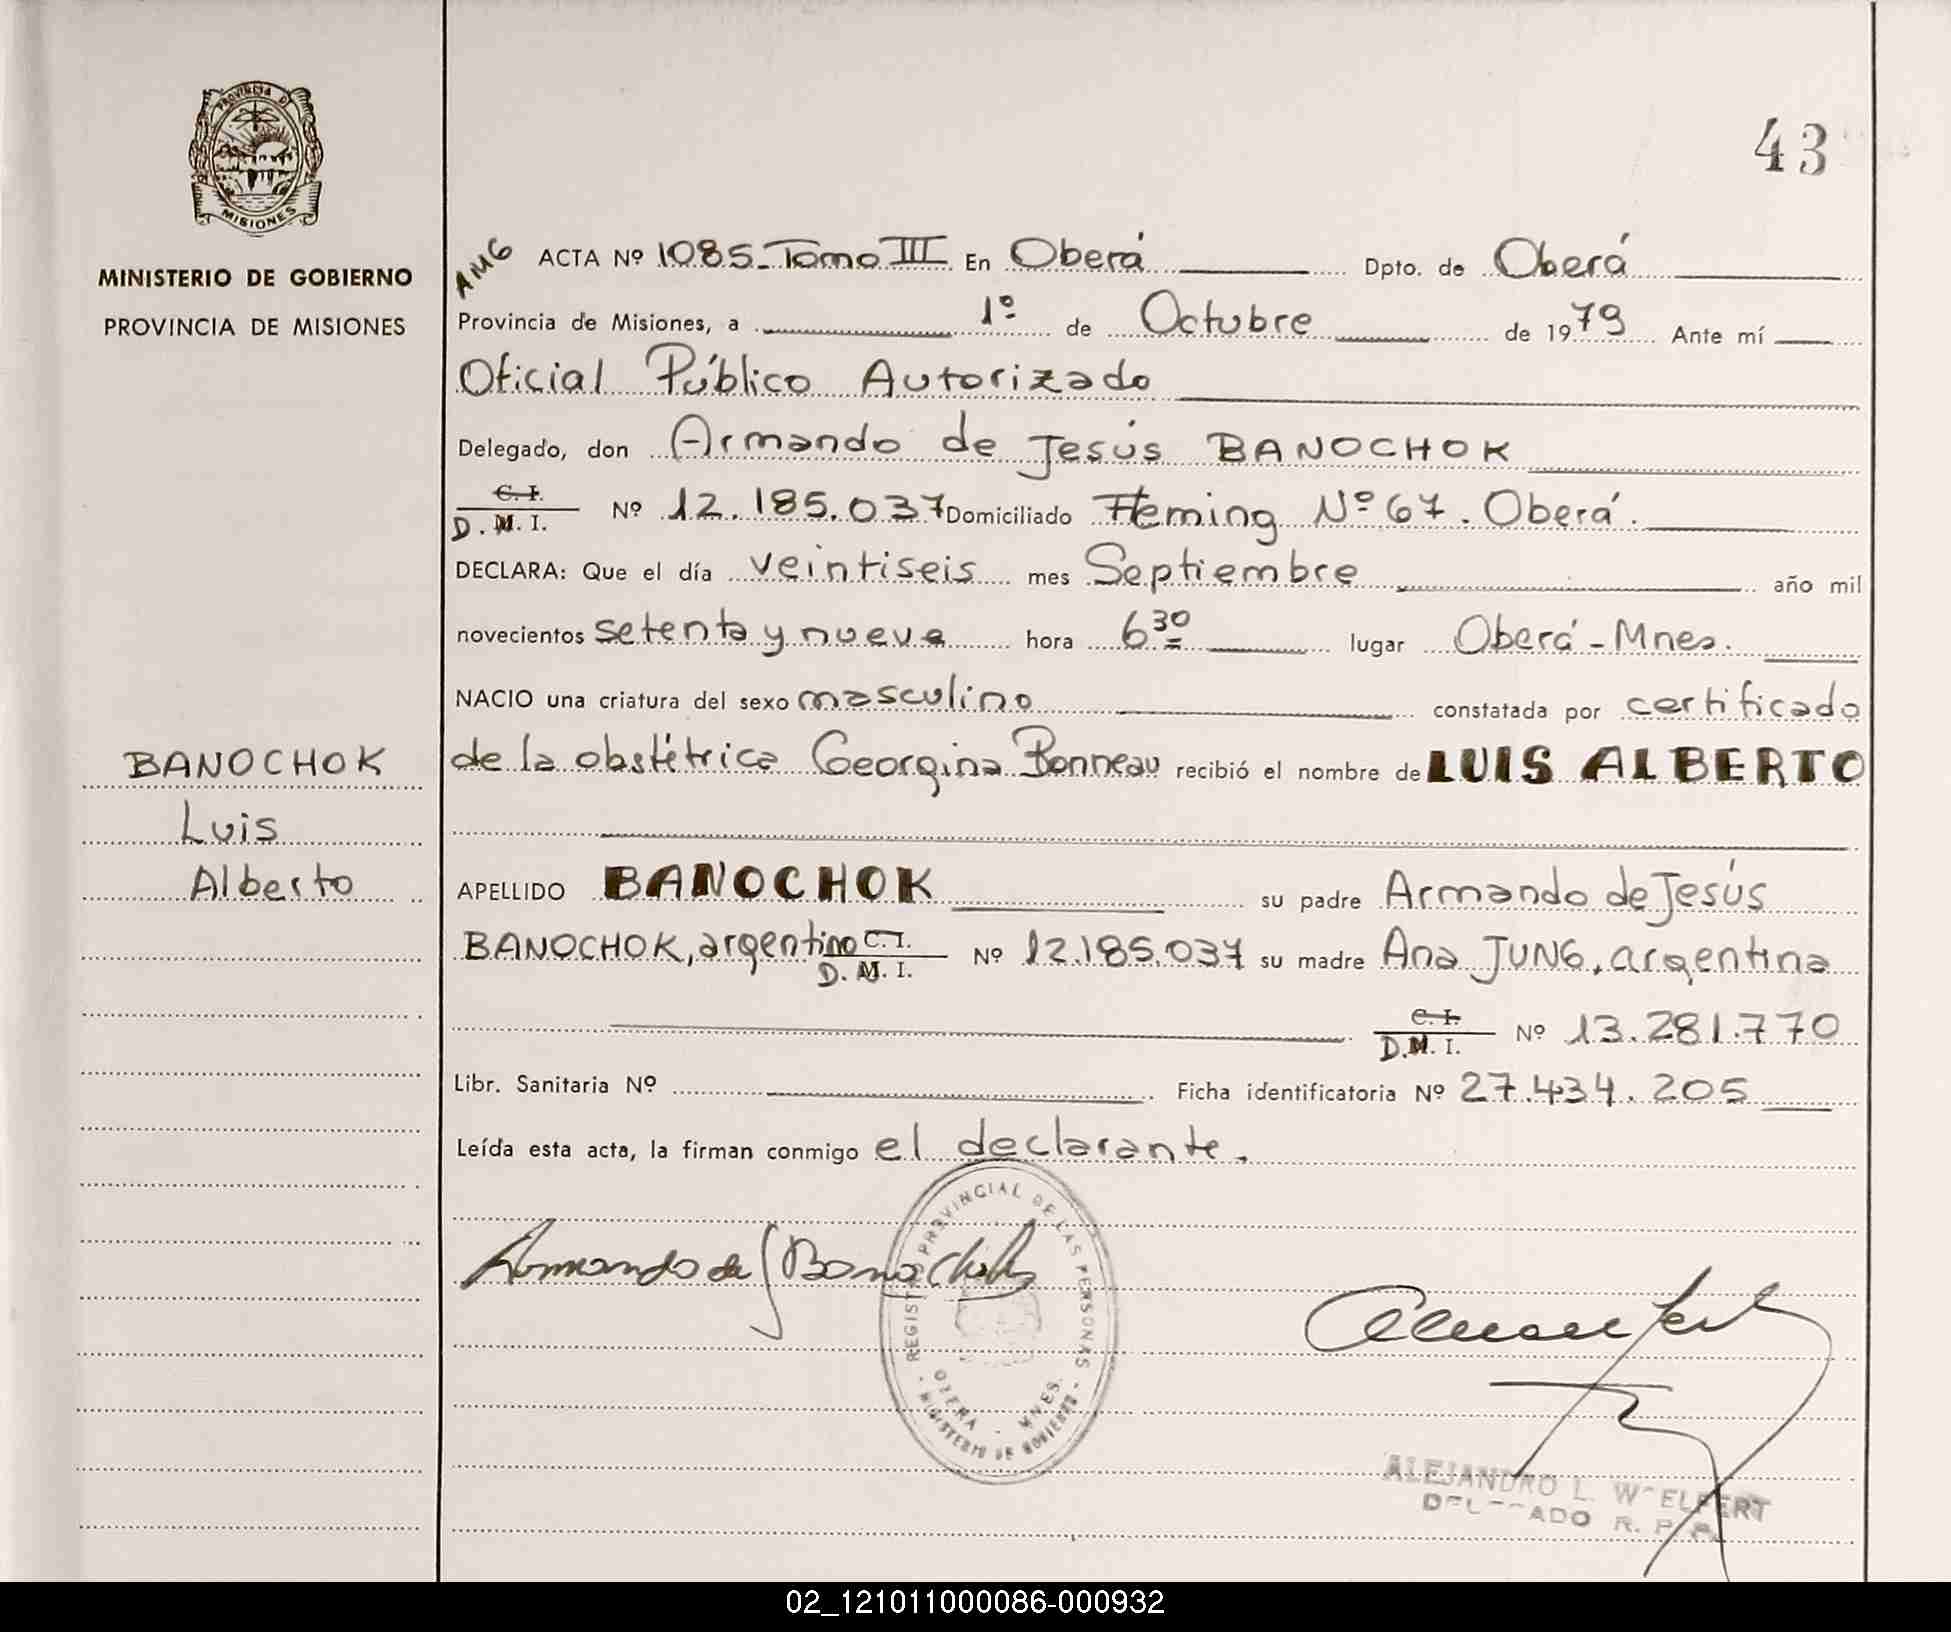 43
PROVINCIA DE
MISIONES
MINISTERIO DE GOBIERNO
PROVINCIA DE MISIONES
BANOCHOK
Luis
Alberto
AMG ACTA Nº 1085-Tomo III En Oberá Dpto. de Oberá
Provincia de Misiones, a 1º de Octubre de 1979 Ante mí
Oficial Público Autorizado
Delegado, don Armando de Jesús BANOCHOK
C. I.
D. M. I. Nº 12.185.037 Domiciliado Fleming Nº 67. Oberá.
DECLARA: Que el día veintiseis mes Septiembre año mil
novecientos setenta y nueve hora 6 30 lugar Oberá - Mnes.
NACIO una criatura del sexo masculino constatada por certificado
de la obstétrica Georgina Bonneau recibió el nombre de LUIS ALBERTO
APELLIDO BANOCHOK su padre Armando de Jesús
BANOCHOK, argentino C. I.
D. M. I. Nº 12.185.037 su madre Ana JUNG, argentina
C. I.
D. M. I. Nº 13.281.770
Libr. Sanitaria Nº Ficha identificatoria Nº 27.434.205
Leída esta acta, la firman conmigo el declarante.
Armando de J Banochok
REGISTRO PROVINCIAL DE LAS PERSONAS
OBERA - MNES.
- MINISTERIO DE GOBIERNO -
ALEJANDRO L.
DELEGADO R. P.
02_121011000086-000932